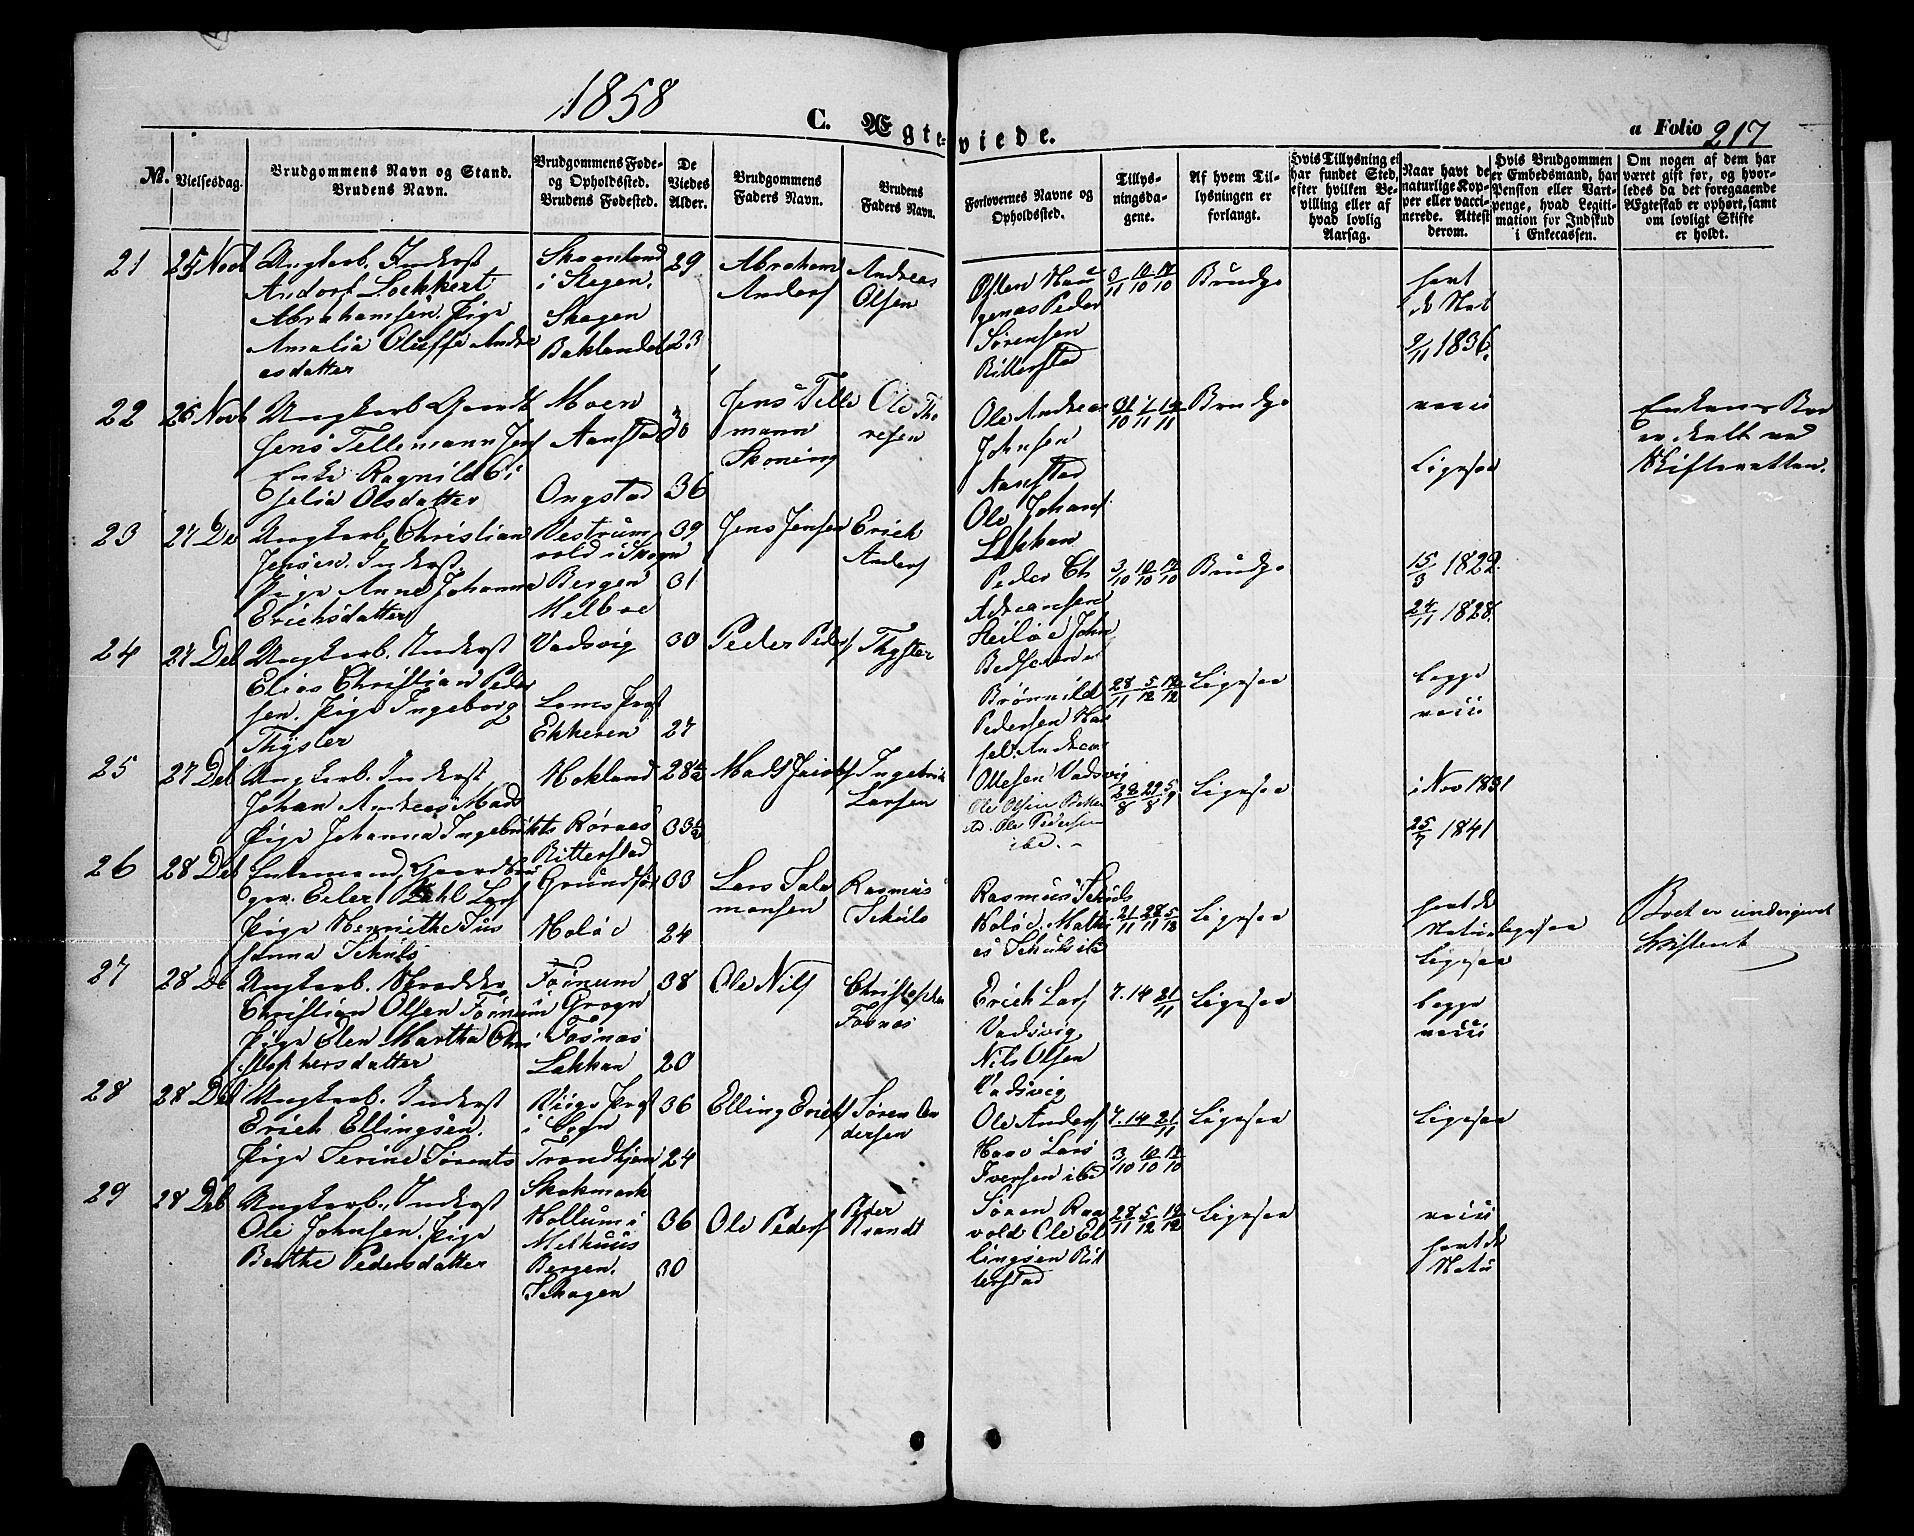 1858
C. Ægteviede.
a Folio 217
No.
Vielsesdag.
Brudgommens Navn og Stand.
Brudens Navn.
Brudgommens Føde-
og Opholdssted.
Brudens Fødested.
De
Viedes
Alder.
Brudgommens
Faders Navn.
Brudens
Faders Navn.
Forlovernes Navne og
Opholdssted.
Tillys-
ningsda-
gene.
Af hvem Til-
lysningen er
forlangt.
Hvis Tillysning ei
har fundet Sted,
efter hvilken Be-
villing eller af
hvad lovlig
Aarsag.
Naar havt de
naturlige Kop-
per eller vacci-
nerede. Attest
derom.
Hvis Brudgommen
er Embedsmand, har
Pension eller Vart-
penge, hvad Legiti-
mation for Indskud
i Enkecassen.
Om nogen af dem har
været gift før, og hvor-
ledes da det foregaaende
Ægteskab er ophørt, samt
om lovligt Skifte
er holdt.
21
25 Novb
Ungkarl. Inderst
Andorf Lockkert
Abrahamsen. Pige
Amalia Oluffe Andre
asdatter
Skaanland
i Stegen.
Skagen
Baklandet
29
23
Abraham
Anders
Andreas
Olsen
Osten Hau
genes Peder
Sørensen
Ritterstad
3/11 10/10 17/10
Brudg
havt
d Nat
9/11 1836.
22
25 Novb
Ungkarl Gaardb
Jens Tellemann Jens
Enke Ragnild Ce
selia Olsdatter
Moen
Aanstad
Ongstad
30
36
Jens Telle
mann
Skoning
Ole Tho
resen
Ole Andreas
Johnsen
Aanstad
Ole Johans
Lakkan
31/10 7/11 14/11
Brudg
vacci
Ligesaa
Enkens Bo
er skilt ved
Skifteretten.
23
27 De
Ungkarl. Christian
Jensen. Inderst.
Pige Anne Johanna
Erichsdatter
Vestrum
vold i Skogn
Bergen
Melboe
39
31
Jens Jensen
Erich
Anders
Peder Ch
Adreansen
Heiløe John
3/10 10/10 17/10
Brudg
15/3 1822.
24/11 1828.
24
27 Deb
Ungkarl. Inderst
Elias Christian Peder
sen. Pige Ingeborg
Thÿster
Vadsvig
Loms Prst
Ekkeren
30
27
Peder Peders
Thyster
Brønnild
Pedersen Has
sel. Andreas
Ottesen Vadsvig
28/11 5/12 12/12
Ligesaa
begge
vacci
25
27 Deb
Ungkarl. Inderst
Johan Andreas Mads
Pige Johanna Ingebrikts
Hokland
Rørnes
Ritterstad
28½
33½
Mads Jacobs
Ingebrik
Larsen
Ole Olsen
Ole Pedersen
ibd.
22/8 29/8 5/9
Ligesaa
i Nov 1831
25/7 1841
26
28 Deb
Enkemand, Gaardbru
ger. Eiler Dahl Lars
Pige Hennithe Sus
sanna Schuls
Grundfør
Holøe
33
24
Lars Salo
monsen
Rasmus
Schuls
Rasmus Schuls
Holøe. Mathi
as Schuls ibd
21/11 28/11 5/12
Ligesaa
havt de
Natur ligesaa
Ligesaa
Boet er undergivet
Skifteret
27
28 Db
Ungkarl. Skrædder
Christian Olsen Foinum
Pige Elen Martha Chri
stophersdatter
Foinum
i Grogn
Fosnæs
Lakkan
38
20
Ole Nils
Christopher
Fosnæs
Erich Lars
Vadsvig
Nils Olsen
Vadsvig
7. 14 21/11
Ligesaa
begge
vacci
28
28 Deb
Ungkarl. Inderst
Erich Ellingsen.
Pige Serine Sørents
Viigs Prst
i Sogn
Trondhjem
36
24
Elling Erichs
Søren An
dersen
Ole Anders
Haae Lars
Iversen ibd
7. 14 21/11
3/10 10/10 17/10
Ligesaa
Ligesaa
29
28 Deb
Ungkarl., Inderst
Ole Johnsen. Pige
Berthe Pedersdatter
Skakmark
Hollum i
Melhuus
Bergen.
Schagen
36
30
Ole Peders
Peder
Brandt
Søren Raa
vold Ole El
lingsen Rit
terstad
28/11 5/12 12/12
Ligesaa
vacci
havt de
Natu